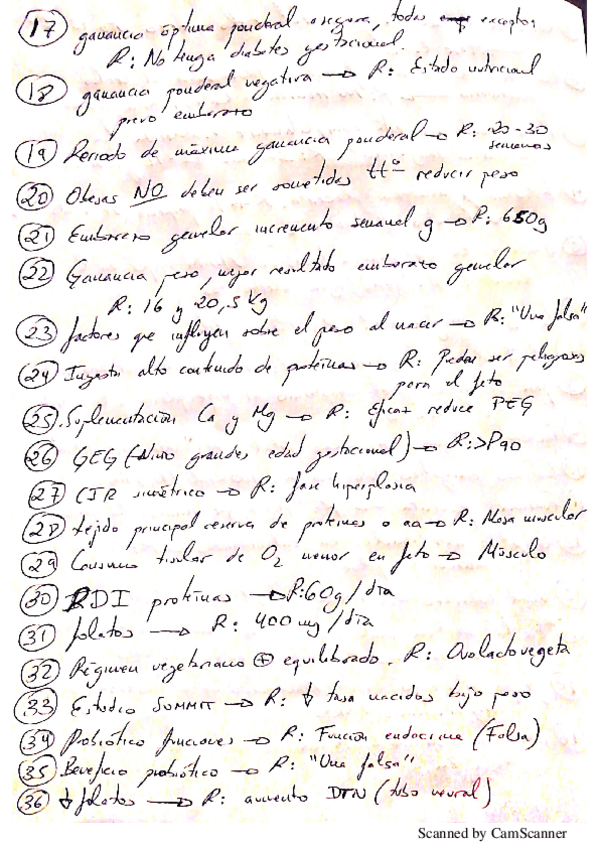 17 ganancia óptima ponderal asegura, todas excepto:
R: No tenga diabetes gestacional
18 ganancia ponderal negativa → R: Estado nutricional
previo embarazo
19 Periodo de máxima ganancia ponderal → R: 20-30
semanas
20 Obesas NO deben ser sometidas tto reducir peso
21 Embarazo gemelar incremento semanal g → R: 650g
22 Ganancia peso, mejor resultado embarazo gemelar
R: 16 y 20,5 Kg
23 factores que influyen sobre el peso al nacer → R: "Una falsa"
24 Ingesta alto contenido de proteínas → R: Pueden ser peligrosas
para el feto
25 Suplementación Ca y Mg → R: Eficaz reduce PEG
26 GEG (Niño grandes edad gestacional) → R: >P90
27 CIR simétrico → R: fase hiperplasia
28 tejido principal reserva de proteínas o aa → R: Masa muscular
29 Consumo tisular de O2 menor en feto → Músculo
30 RDI proteínas → R: 60g/día
31 folatos → R: 400 mg/día
32 Régimen vegetariano ⊕ equilibrado. R: Ovolactovegeta
33 Estudio SUMMIT → R: ↓ tasa nacidos bajo peso
34 Probiótico funciones → R: Función endocrina (Falsa)
35 Beneficio probiótico → R: "Una falsa"
36 ↓ folatos → R: aumento DTN (tubo neural)
Scanned by CamScanner